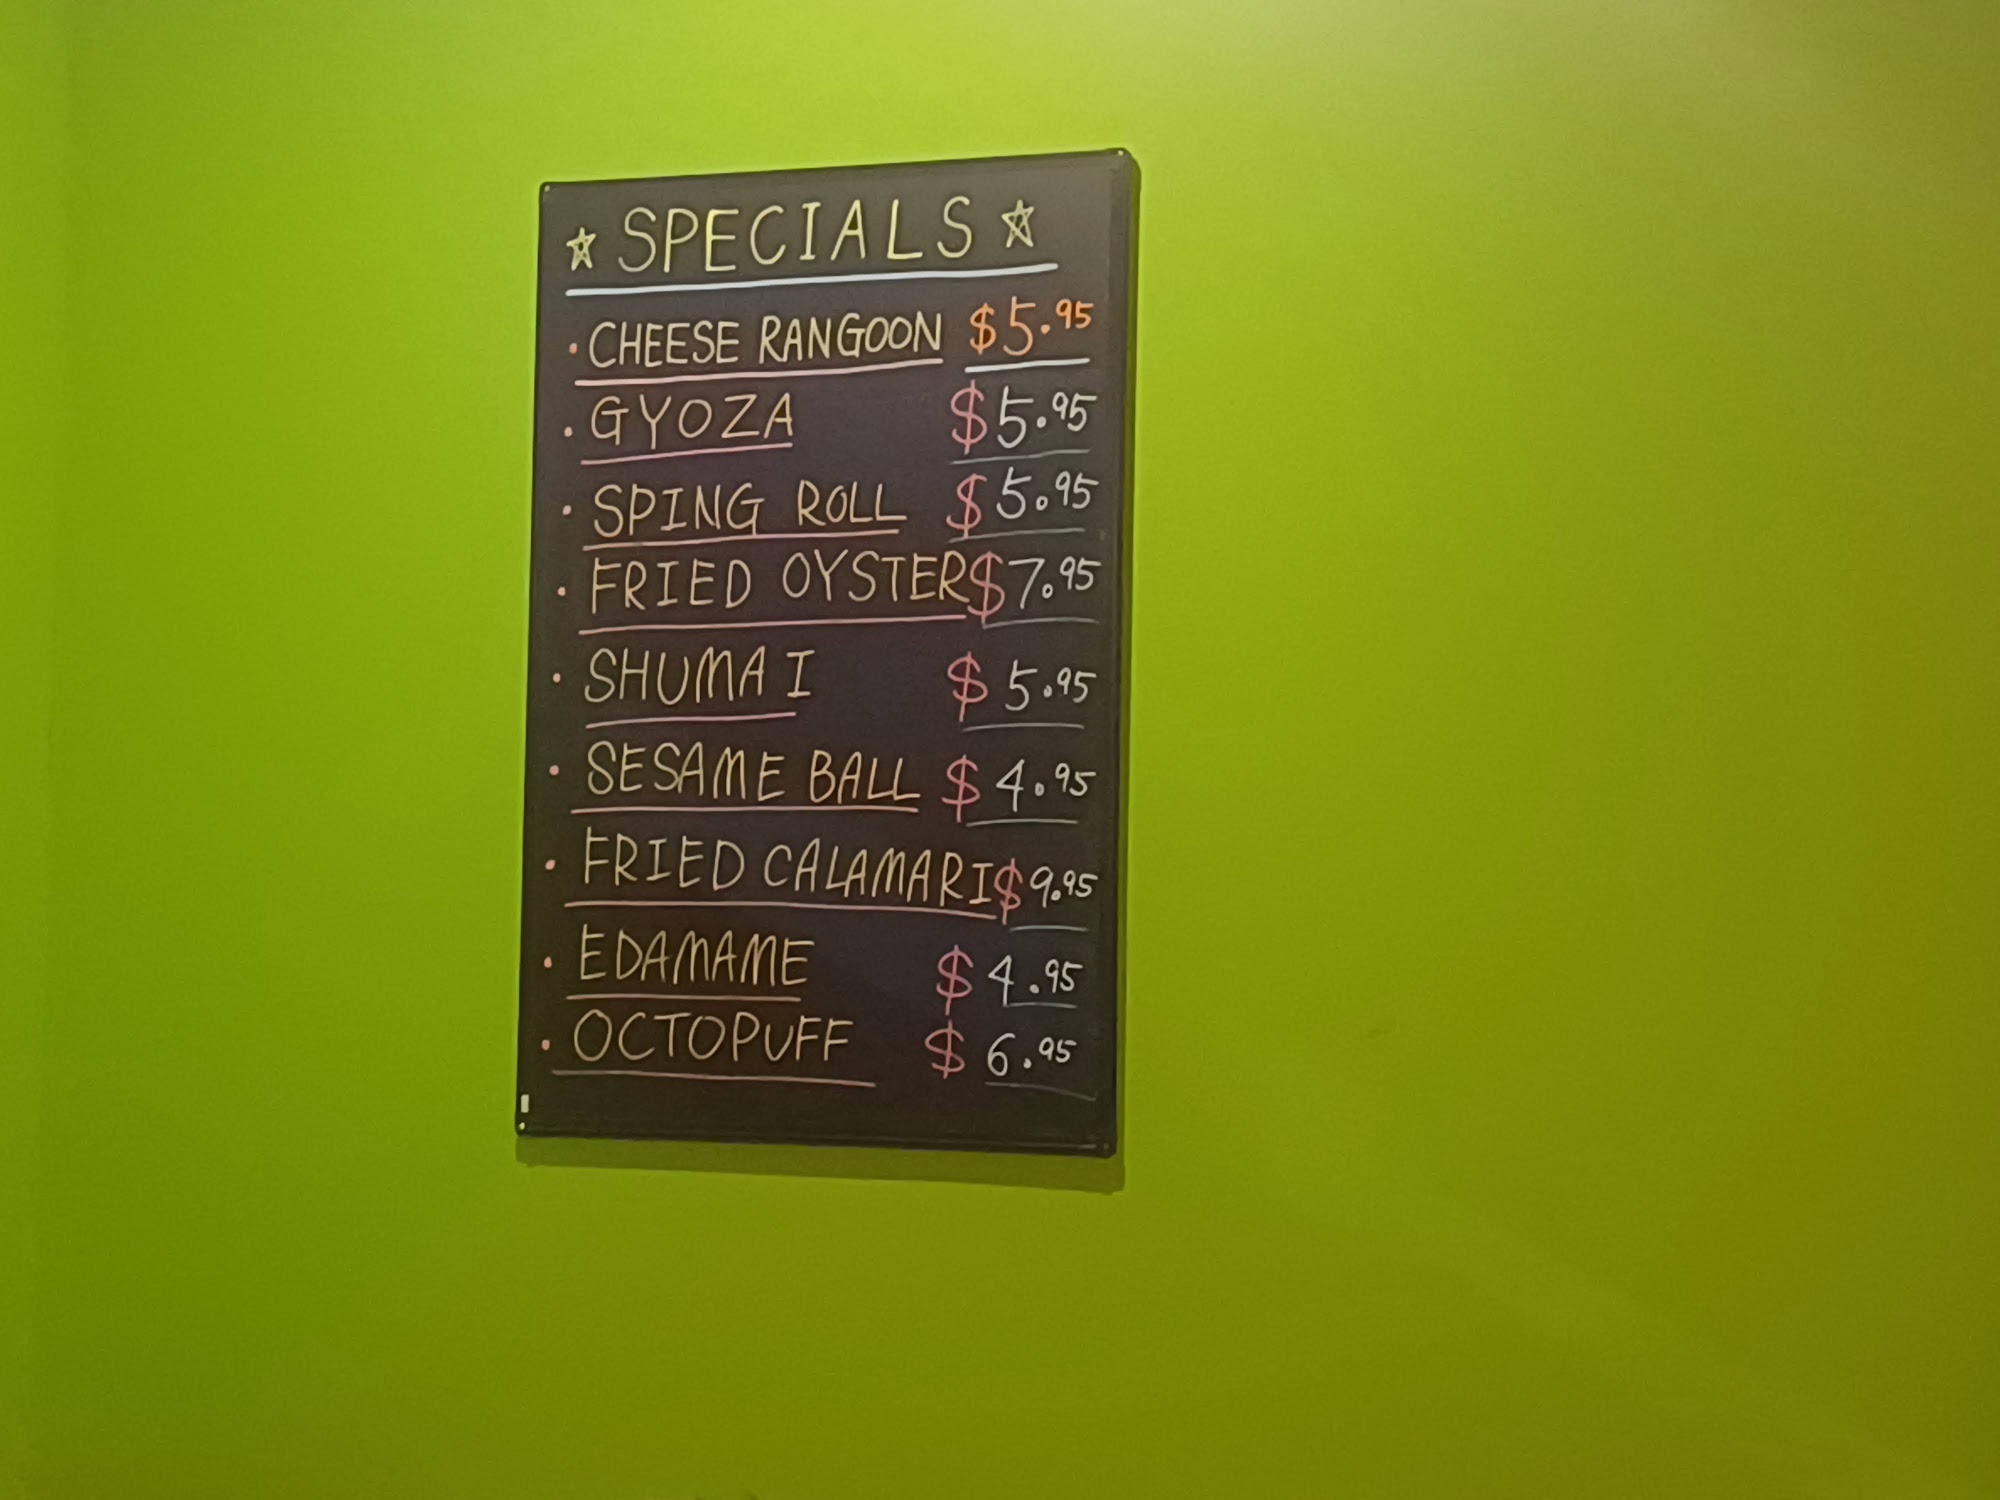 SPECIALS
CHEESE RANGOON $5.95
GYOZA $5.95
SPING ROLL $5.95
FRIED OYSTER $7.95
SHUMAI $5.95
SESAME BALL $4.95
FRIED CALAMARI $9.95
EDAMAME $4.95
OCTOPUFF $6.95